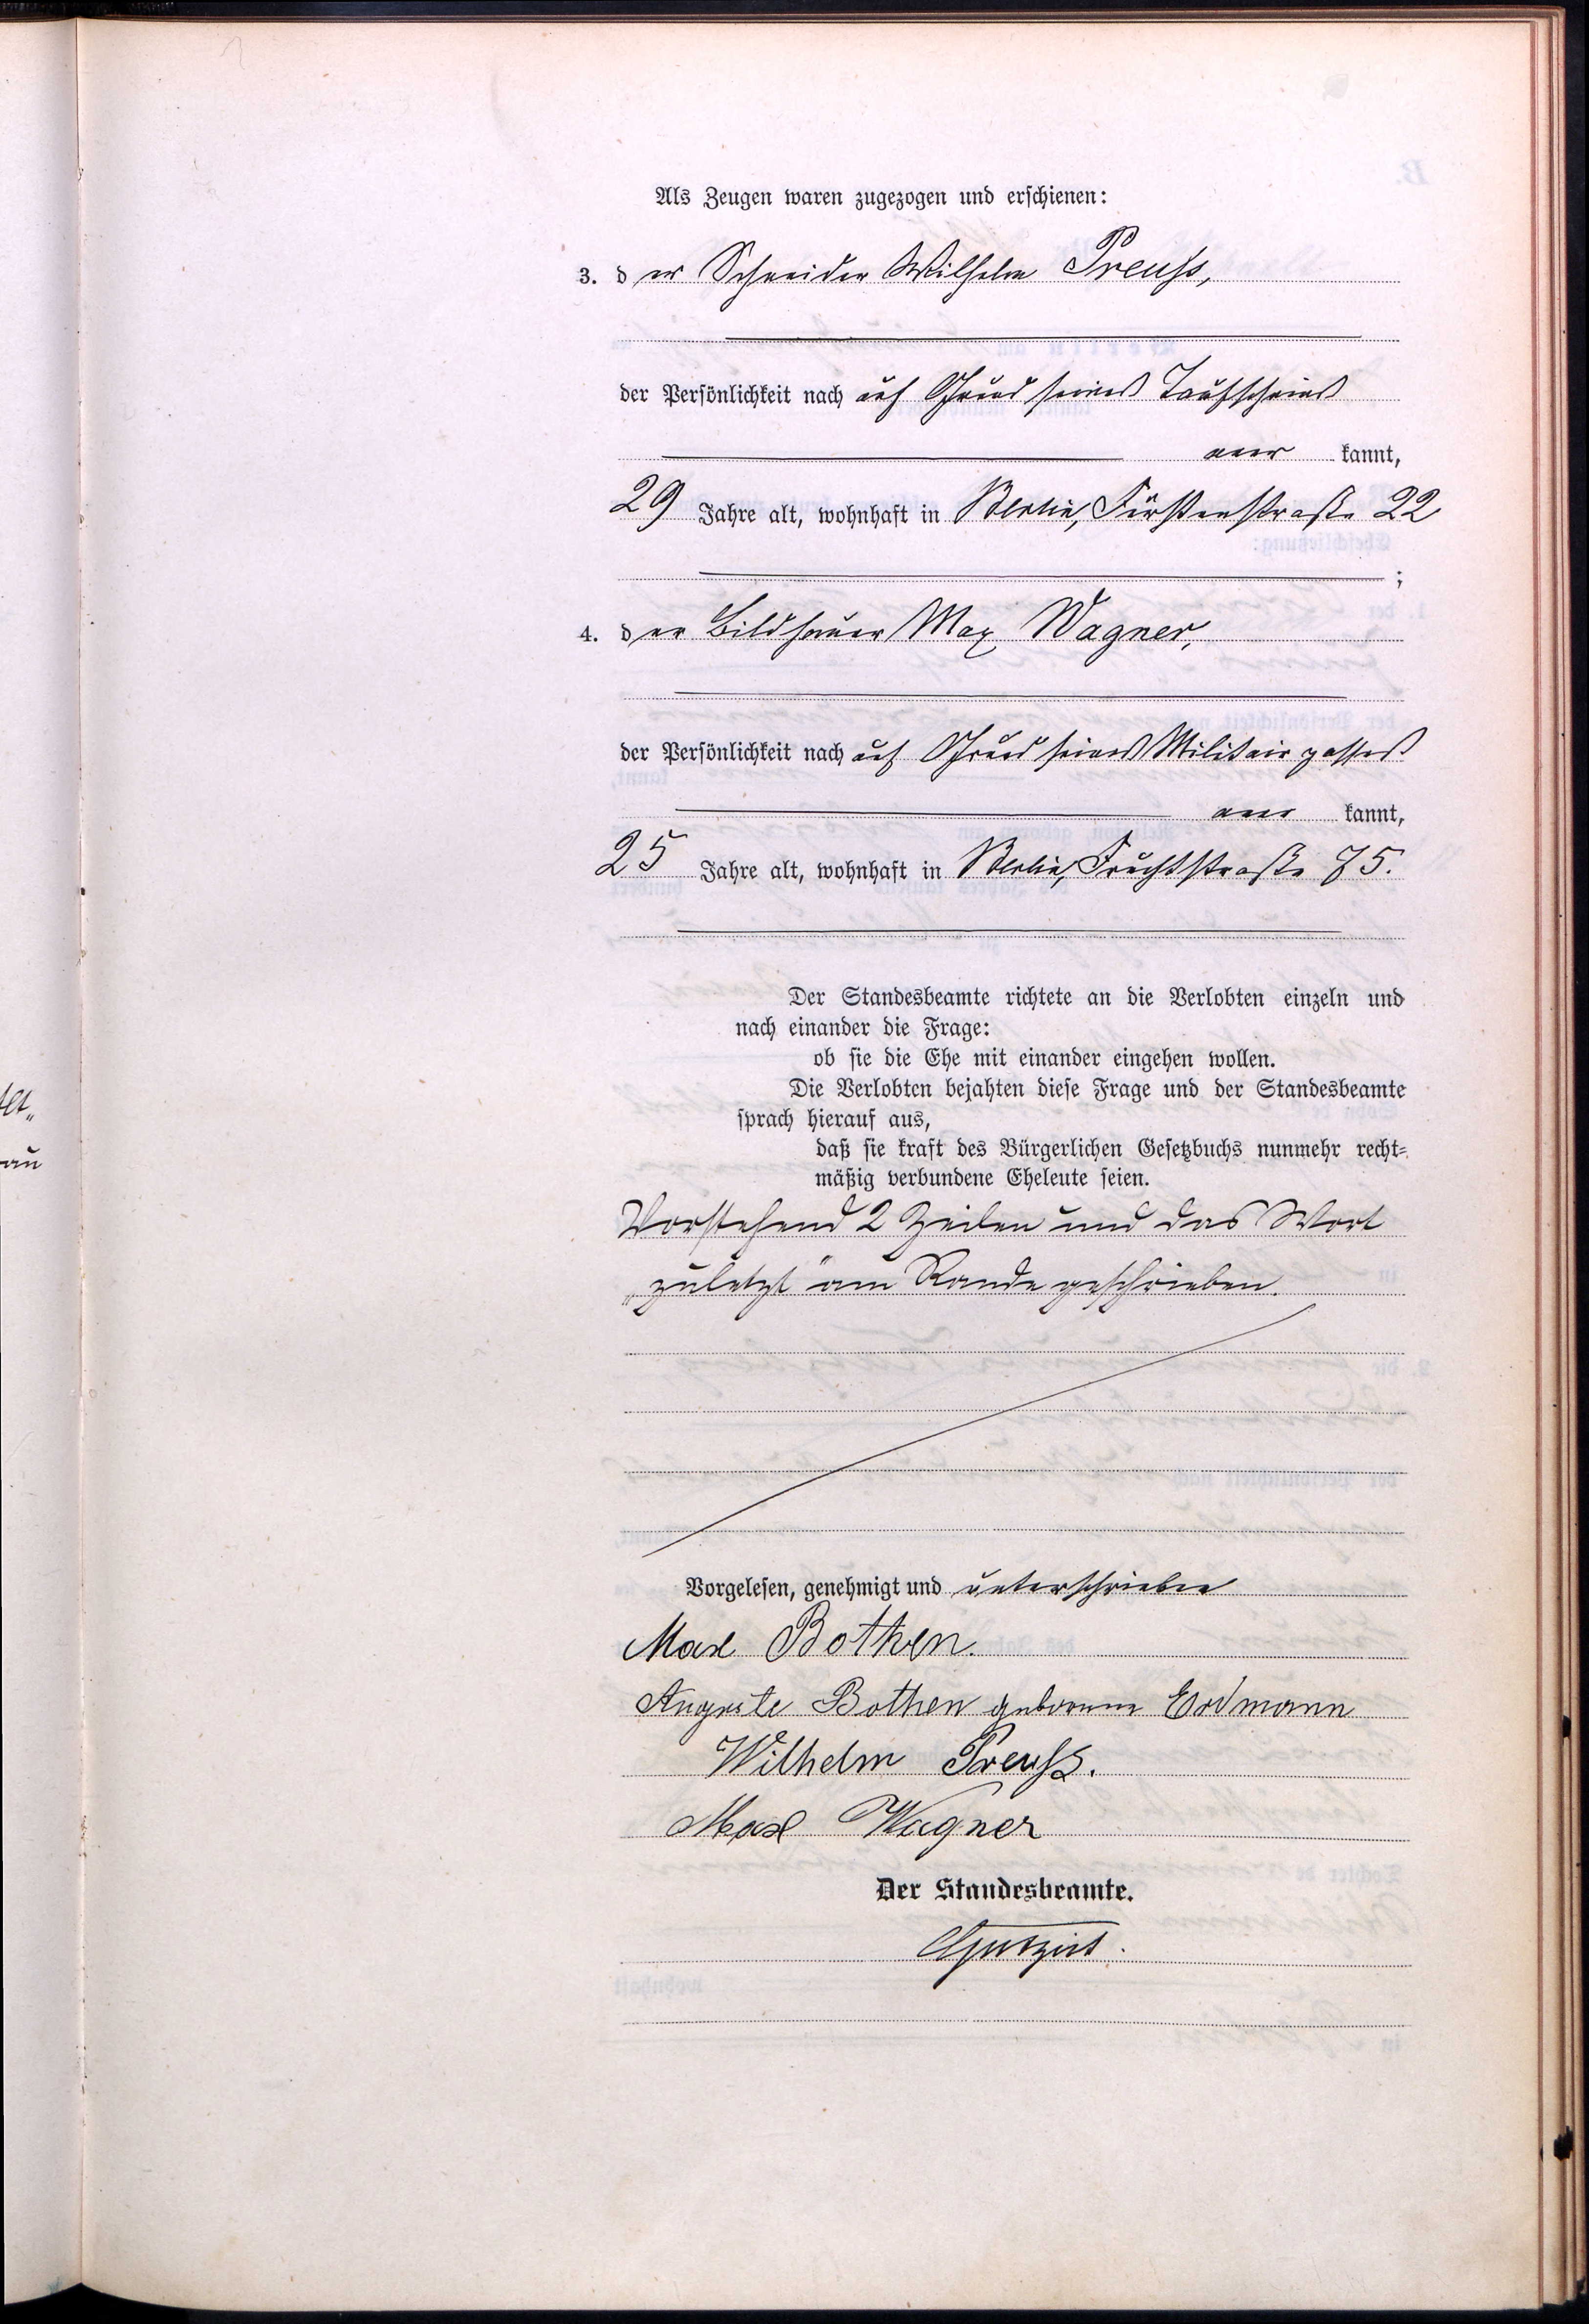 Als Zeugen waren zugezogen und erschienen:
3. der Schneider Wilhelm Preuß,
der Persönlichkeit nach auf Grund seines Taufscheins
aner kannt,
29 Jahre alt, wohnhaft in Berlin, Fürstenstraße 22
;
4. der Bildhauer Max Wagner,
der Persönlichkeit nach auf Grund seines Militairpasses
aner kannt,
25 Jahre alt, wohnhaft in Berlin, Fruchtstraße 75.
Der Standesbeamte richtete an die Verlobten einzeln und
nach einander die Frage:
ob sie die Ehe mit einander eingehen wollen.
Die Verlobten bejahten diese Frage und der Standesbeamte
sprach hierauf aus,
daß sie kraft des Bürgerlichen Gesetzbuchs nunmehr recht-
mäßig verbundene Eheleute seien.
Vorstehend 2 Zeilen und das Wort
„zuletzt" am Rande geschrieben.
Vorgelesen, genehmigt und unterschrieben
Max Bothen.
Auguste Bothen geborene Erdmann
Wilhelm Preuß.
Max Wagner
Der Standesbeamte.